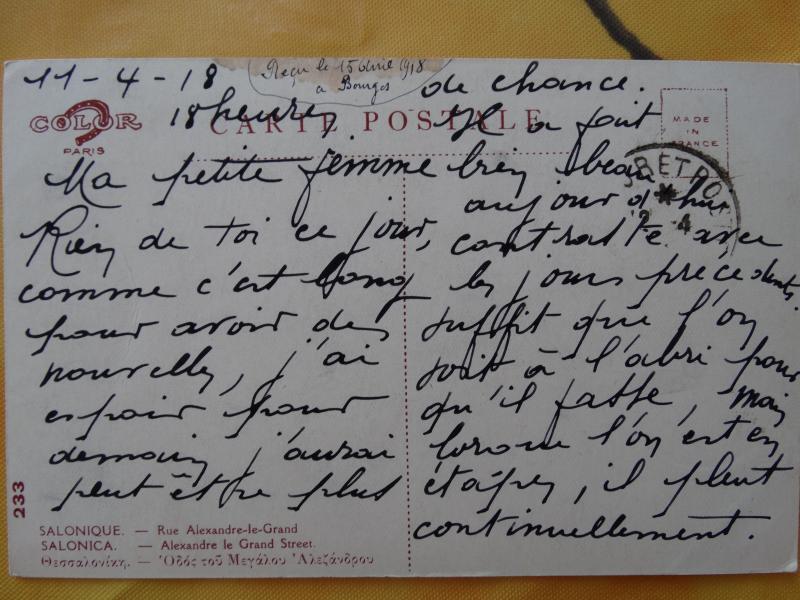 11-4-18
Reçu le 15 avril 1918
à Bourges
18 heures
COLOR
PARIS
CARTE POSTALE
MADE
IN
FRANCE
Ma petite femme
Rien de toi ce jour,
comme c'est long
pour avoir des
nouvelles, j'ai
espoir pour
demain, j'aurai
peut être plus
de chance.
Il a fait
bien beau
aujourd'hui
contraste avec
les jours précédents.
suffit que l'on
soit à l'abri pour
qu'il fasse, mais
lorsque l'on est en
étapes, il pleut
continuellement.
4
233
SALONIQUE. — Rue Alexandre-le-Grand
SALONICA. — Alexandre le Grand Street.
Θεσσαλονίκη. — Ὁδός τοῦ Μεγάλου Ἀλεξάνδρου